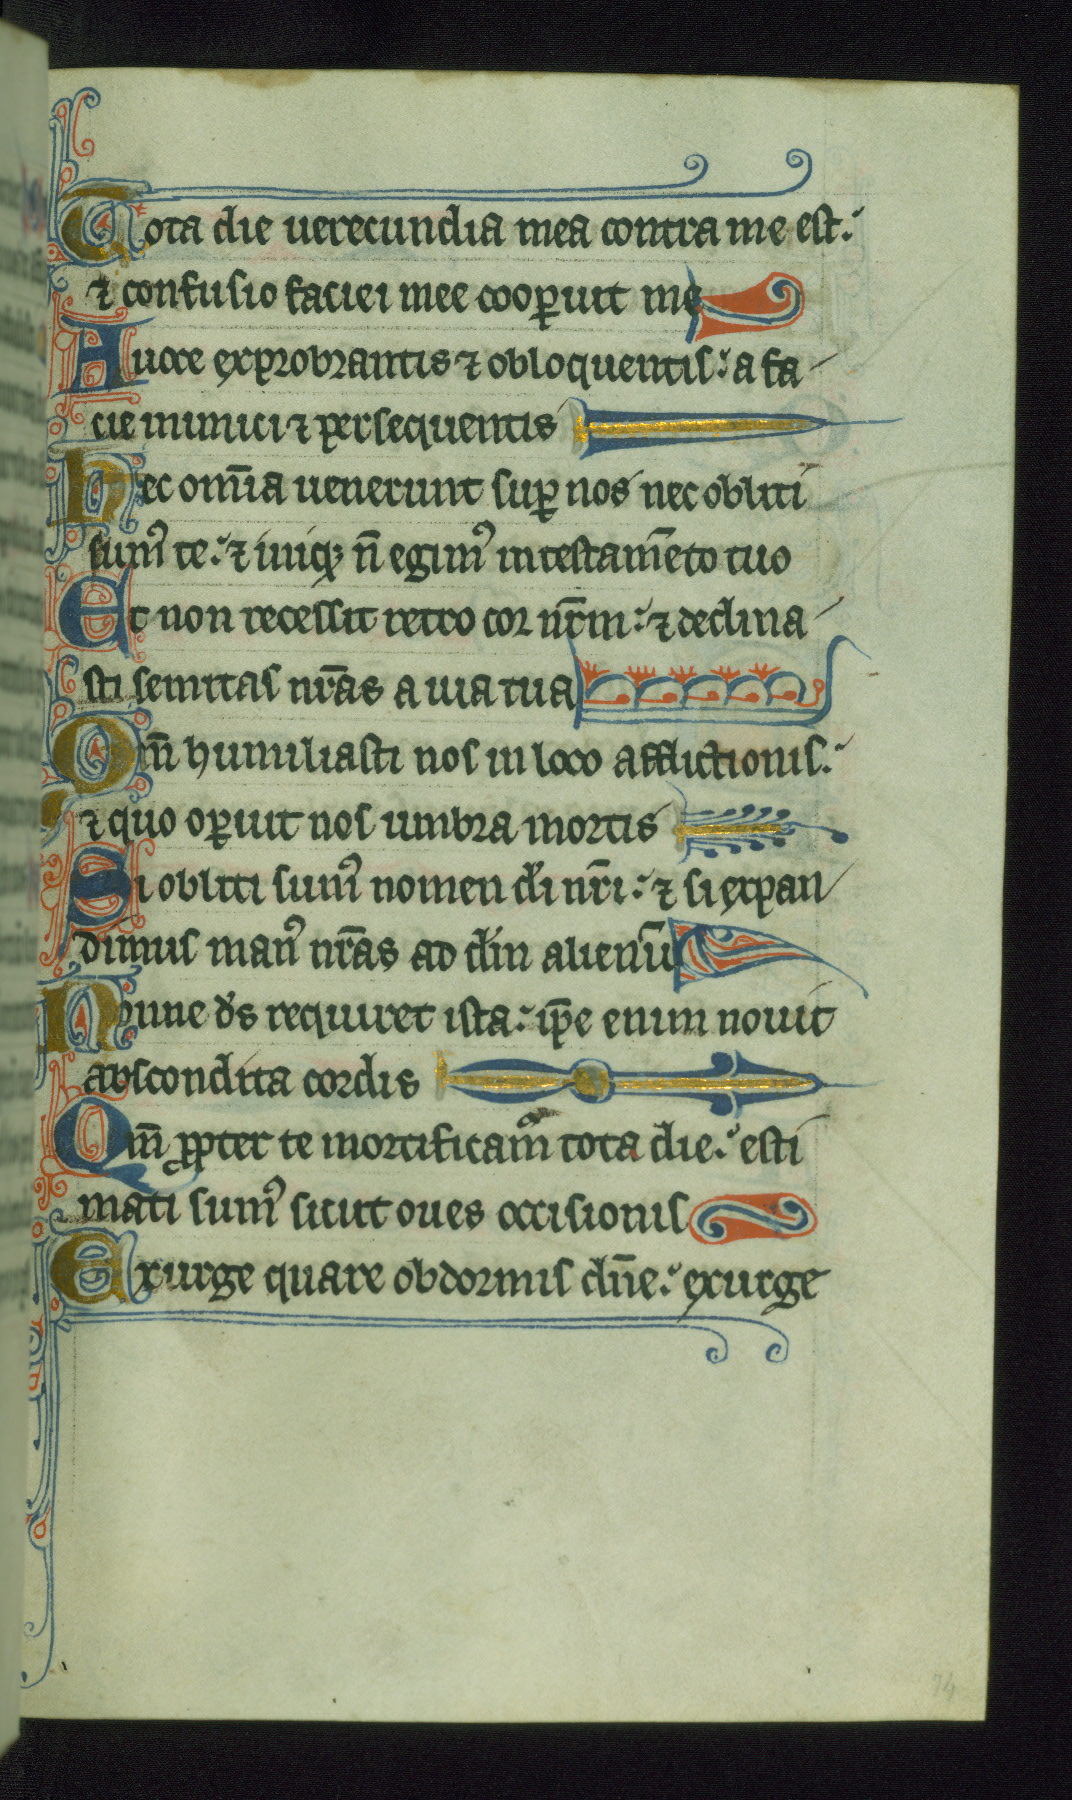 Tota die uerecundia mea contra me est:
⁊ confusio faciei mee coop̱uit me
A uoce exprobrantis ⁊ obloquentis: a fa
cie inimici ⁊ persequentis
Hec om̄ia uenerunt sup̱ nos nec obliti
sumꝰ te: ⁊ iniq; n̄ egimꝰ in testam̄eto tuo
Et non recessit retro cor nr̄m: ⁊ declina
sti semitas nr̄as a uia tua
Qm̄ humiliasti nos in loco afflictionis:
⁊ quo op̱uit nos umbra mortis
Si obliti sumꝰ nomen dī nr̄i: ⁊ si expan
dimus manꝰ nr̄as ad dm̄ alienū
Nonne ds̄ requiret ista: ip̄e enim nouit
abscondita cordis
Qm̄ ꝓpter te mortificam̄ tota die: esti
mati sumꝰ sicut oues occisionis
Exurge quare obdormis dn̄e: exurge
74